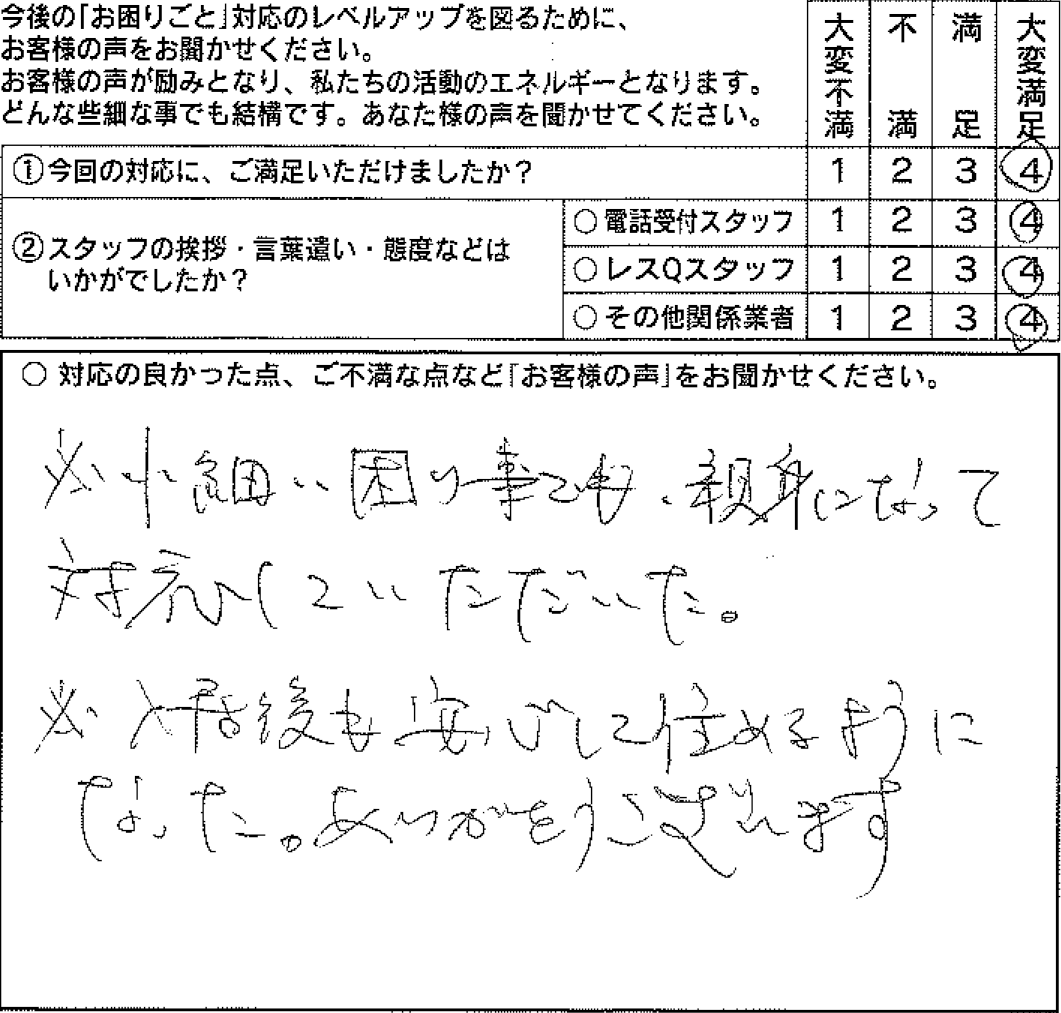 今後の「お困りごと」対応のレベルアップを図るために、
お客様の声をお聞かせください。
お客様の声が励みとなり、私たちの活動のエネルギーとなります。
どんな些細な事でも結構です。あなた様の声を聞かせてください。
大変不満 不満 満足 大変満足
①今回の対応に、ご満足いただけましたか? 1 2 3 4
②スタッフの挨拶・言葉遣い・態度などは
いかがでしたか?
○電話受付スタッフ 1 2 3 4
○レスQスタッフ 1 2 3 4
○その他関係業者 1 2 3 4
○ 対応の良かった点、ご不満な点など「お客様の声」をお聞かせください。
※ 細い困り事でも、親身になって
対応していただいた。
※ 入居後も安心して住めるように
なった。ありがとうございます